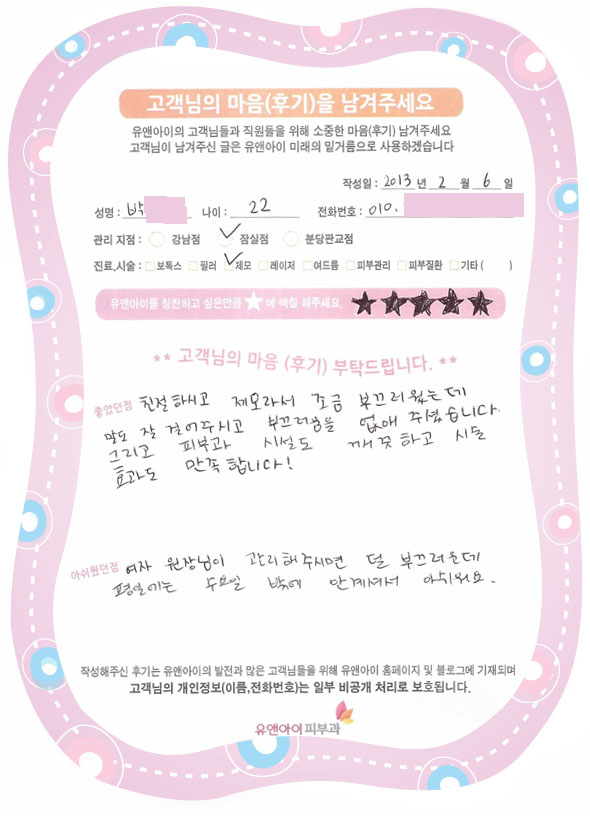 고객님의 마음(후기)을 남겨주세요
유앤아이의 고객님들과 직원들을 위해 소중한 마음(후기) 남겨주세요
고객님이 남겨주신 글은 유앤아이 미래의 밑거름으로 사용하겠습니다
작성일 : 2013 년 2 월 6 일
성명 : 박 나이 : 22 전화번호 : 010.
관리 지점 : 강남점 잠실점 분당판교점
진료,시술 : 보톡스 필러 제모 레이저 여드름 피부관리 피부질환 기타 ( )
유앤아이를 칭찬하고 싶은만큼 ★ 에 색칠 해주세요. ★★★★★
** 고객님의 마음 (후기) 부탁드립니다. **
좋았던점 친절하시고 제모라서 조금 부끄러웠는데
말도 잘 걸어주시고 부끄러움을 없애 주셨습니다.
그리고 피부과 시설도 깨끗하고 시술
효과도 만족합니다!
아쉬웠던점 여자 원장님이 관리해주시면 덜 부끄러운데
평일에는 수요일 밖에 안계셔서 아쉬워요.
작성해주신 후기는 유앤아이의 발전과 많은 고객님들을 위해 유앤아이 홈페이지 및 블로그에 기재되며
고객님의 개인정보(이름,전화번호)는 일부 비공개 처리로 보호됩니다.
유앤아이피부과